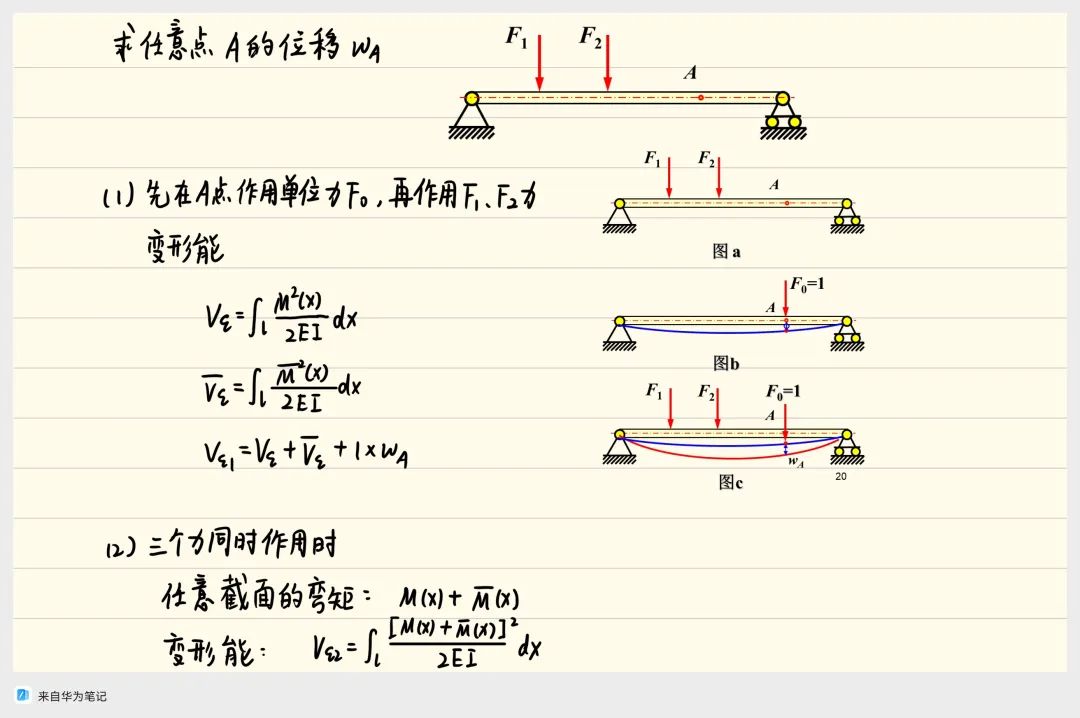 求任意点 A 的位移 wA
F1 F2
A
(1) 先在A点作用单位力F0,再作用F1、F2力
变形能
F1 F2
A
图 a
Vε=∫l M²(x)/2EI dx
F0=1
A
图b
V̅ε=∫l M̅²(x)/2EI dx
F1 F2 F0=1
A
Vε1=Vε+V̅ε+1×wA
wA
图c
20
(2) 三个力同时作用时
任意截面的弯矩: M(x)+M̅(x)
变形能: Vε2=∫l [M(x)+M̅(x)]²/2EI dx
来自华为笔记